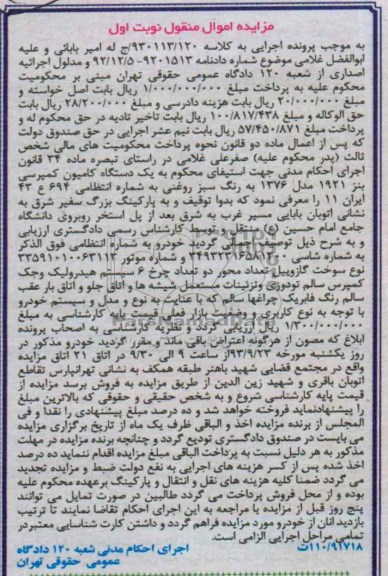 مزایده اموال منقول نوبت اول
به موجب پرونده اجرایی به کلاسه ۹۳۰۱۱۳/۱۲۰/ج له امیر بابائی و علیه
ابوالفضل غلامی موضوع شماره دادنامه ۹۲۰۱۵۱۳-۹۲/۱۲/۵ و مدلول اجرائیه
اصداری از شعبه ۱۲۰ دادگاه عمومی حقوقی تهران مبنی بر محکومیت
محکوم علیه به پرداخت مبلغ ۱/۰۰۰/۰۰۰/۰۰۰ ریال بابت اصل خواسته و
مبلغ ۲۰/۰۰۰/۰۰۰ ریال بابت هزینه دادرسی و مبلغ ۲۸/۲۰۰/۰۰۰ ریال بابت
حق الوکاله و مبلغ ۱۰۰/۸۱۷/۴۳۸ ریال بابت تاخیر تادیه در حق محکوم له و
پرداخت مبلغ ۵۷/۴۵۰/۸۷۱ ریال بابت نیم عشر اجرایی در حق صندوق دولت
که پس از اعمال ماده دو قانون نحوه پرداخت محکومیت های مالی شخص
ثالث (پدر محکوم علیه) صفرعلی غلامی در راستای تبصره ماده ۳۴ قانون
اجرای احکام مدنی جهت استیفای محکوم به یک دستگاه کامیون کمپرسی
بنز ۱۹۲۱ مدل ۱۳۷۶ به رنگ سبز روغنی به شماره انتظامی ۶۹۴ ع ۴۳
ایران ۱۱ را معرفی نمود که بدوا توقیف و به پارکینگ بزرگ سفیر شرق به
نشانی اتوبان بابایی مسیر غرب به شرق بعد از پل استخر روبروی دانشگاه
جامع امام حسین (ع) منتقل و توسط کارشناس رسمی دادگستری ارزیابی
و به شرح ذیل توصیف اجمالی گردید: خودرو به شماره انتظامی فوق الذکر
به شماره شاسی و شماره موتور
نوع سوخت گازوییل تعداد محور دو تعداد چرخ ۶ سیستم هیدرولیک وجک
کمپرس سالم تودوزی وتزئینات مستعمل شیشه ها و اتاق جلو و اتاق بار عقب
سالم رنگ فابریک چراغها سالم که با عنایت به نوع و مدل و سیستم خودرو
با توجه به نوع کاربری و وضعیت بازار فعلی قیمت پایه کارشناسی به مبلغ
۱/۳۰۰/۰۰۰/۰۰۰ ریال گردد و نظریه کارشناسی به اصحاب پرونده
ابلاغ که مصون از هرگونه اعتراض باقی ماند و مقرر گردید خودرو مذکور در
روز یکشنبه مورخه ۹۳/۹/۲۳از ساعت ۹ الی ۹/۳۰ در اتاق ۲۱ اتاق مزایده
واقع در مجتمع قضایی شهید باهنر طبقه همکف به نشانی تهرانپارس تقاطع
اتوبان باقری و شهید زین الدین از طریق مزایده به فروش برسد مزایده از
قیمت پایه کارشناسی شروع و به شخص حقیقی و حقوقی که بالاترین مبلغ
را پیشنهادنماید فروخته خواهد شد و ده درصد مبلغ پیشنهادی را نقدا و فی
المجلس از برنده مزایده اخذ و الباقی ظرف یک ماه از تاریخ برگزاری مزایده
می بایست در صندوق دادگستری تودیع گردد و چنانچه برنده مزایده در مهلت
مذکور به هر دلیل نسبت به پرداخت الباقی مبلغ مزایده اقدام ننماید ده درصد
اخذ شده پس از کسر هزینه های اجرایی به نفع دولت ضبط و مزایده تجدید
می گردد ضمنا کلیه هزینه های نقل و انتقال و پارکینگ برعهده محکوم علیه
بوده و از محل فروش پرداخت می گردد طالبین در صورت تمایل می توانند
پنج روز قبل از مزایده با مراجعه به این اجرای احکام تقاضا نمایند تا ترتیب
بازدید انان از خودرو مورد مزایده فراهم گردد و داشتن کارت شناسایی معتبردر
تمامی مراحل اجرایی الزامی است.
۱۱۰/۹۱۷۱۸ت
اجرای احکام مدنی شعبه ۱۲۰ دادگاه
عمومی حقوقی تهران